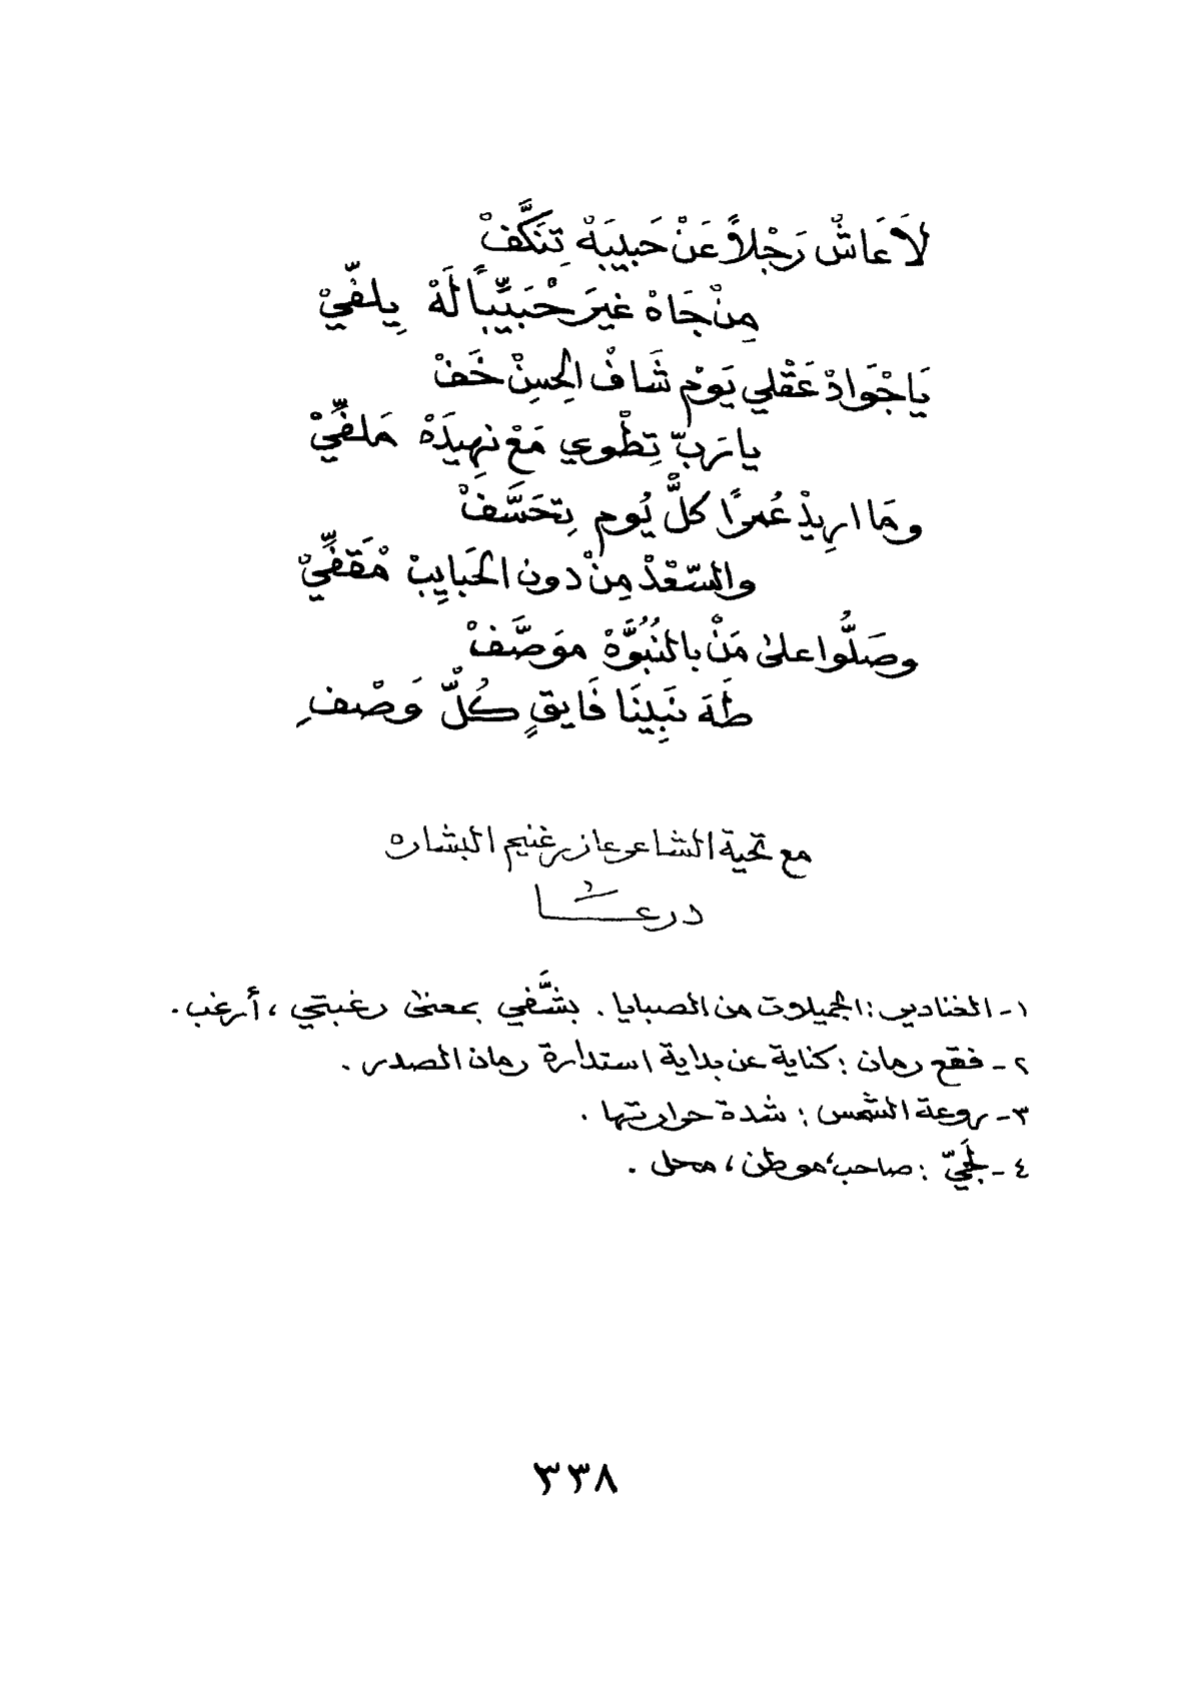 لَاعَاشْ رَجْلاً عَنْ حَبِيبَهْ تِنَكَّفْ
مِنْ جَاهْ غيرَ حْبَيِّباً لَهْ يِلفّيْ
يَاجْوَادْ عَقْلي يَوْم شَافْ الحِسِنْ خَفْ
يا رَبّ تِطْوي مَعْ نِهِيدَهْ مَلفِّيْ
ومَا اريِدْ عُمرًا كلَّ يُوم بِتحَسَّفْ
والسّعْدْ مِنْ دون الحَبايِبْ مْقَفِّيْ
وصَلُّوا علىٰ مَنْ بالنُبُوَّهْ موَصَّفْ
طَهَ نَبِينَا فَايقٍ كُلّ وَصْفِ
مع تحية الشاعر عازر غنيم البشاره
درعـــا
١- الخنادير: الجميلات من الصبايا . بشَّفي بمعنىٰ رغبتي ، أرغب .
٢- فقع رمان : كناية عن بداية استدارة رمان الصدر .
٣- روعة الشمس : شدة حرارتها .
٤- لجَيّ : صاحب، موطن ، محل .
٣٣٨